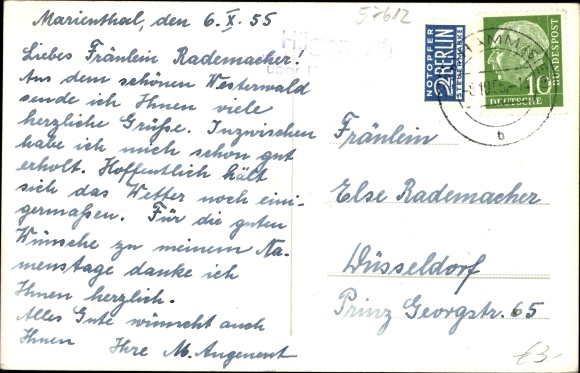 Marienthal, den 6. X. 55
57612
Liebes Fräulein Rademacher!
Aus dem schönen Westerwald
sende ich Ihnen viele
herzliche Grüße. Inzwischen
habe ich mich schon gut
erholt. Hoffentlich hält
sich das Wetter noch eini-
germaßen. Für die guten
Wünsche zu meinem Na-
menstage danke ich
Ihnen herzlich.
Alles Gute wünscht auch
Ihnen Ihre M. Angenent
NOTOPFER
2 BERLIN
STEUERMARKE
DEUTSCHE
BUNDESPOST
10
HAMM (S
b
Fräulein
Else Rademacher
Düsseldorf
Prinz Georgstr. 65
€3.-